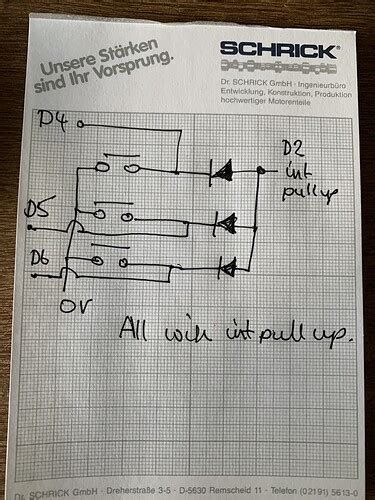 Unsere Stärken
sind Ihr Vorsprung.
SCHRICK®
Dr. SCHRICK GmbH · Ingenieurbüro
Entwicklung, Konstruktion, Produktion
hochwertiger Motorenteile
D4
D2
int
pull up
D5
D6
0V
All with int pull up.
Dr. SCHRICK GmbH - Dreherstraße 3-5 - D-5630 Remscheid 11 - Telefon (02191) 5613-0